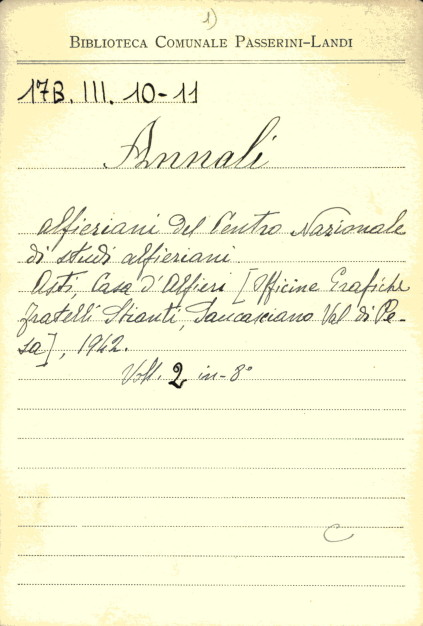 1)
BIBLIOTECA COMUNALE PASSERINI-LANDI
17B. III. 10-11
Annali
alfieriani del Centro Nazionale
di studi alfieriani.
Asti, Casa d'Alfieri [Officine Grafiche
fratelli Stianti, Sancasciano Val di Pe-
sa], 1942.
Voll. 2 in-8°
C